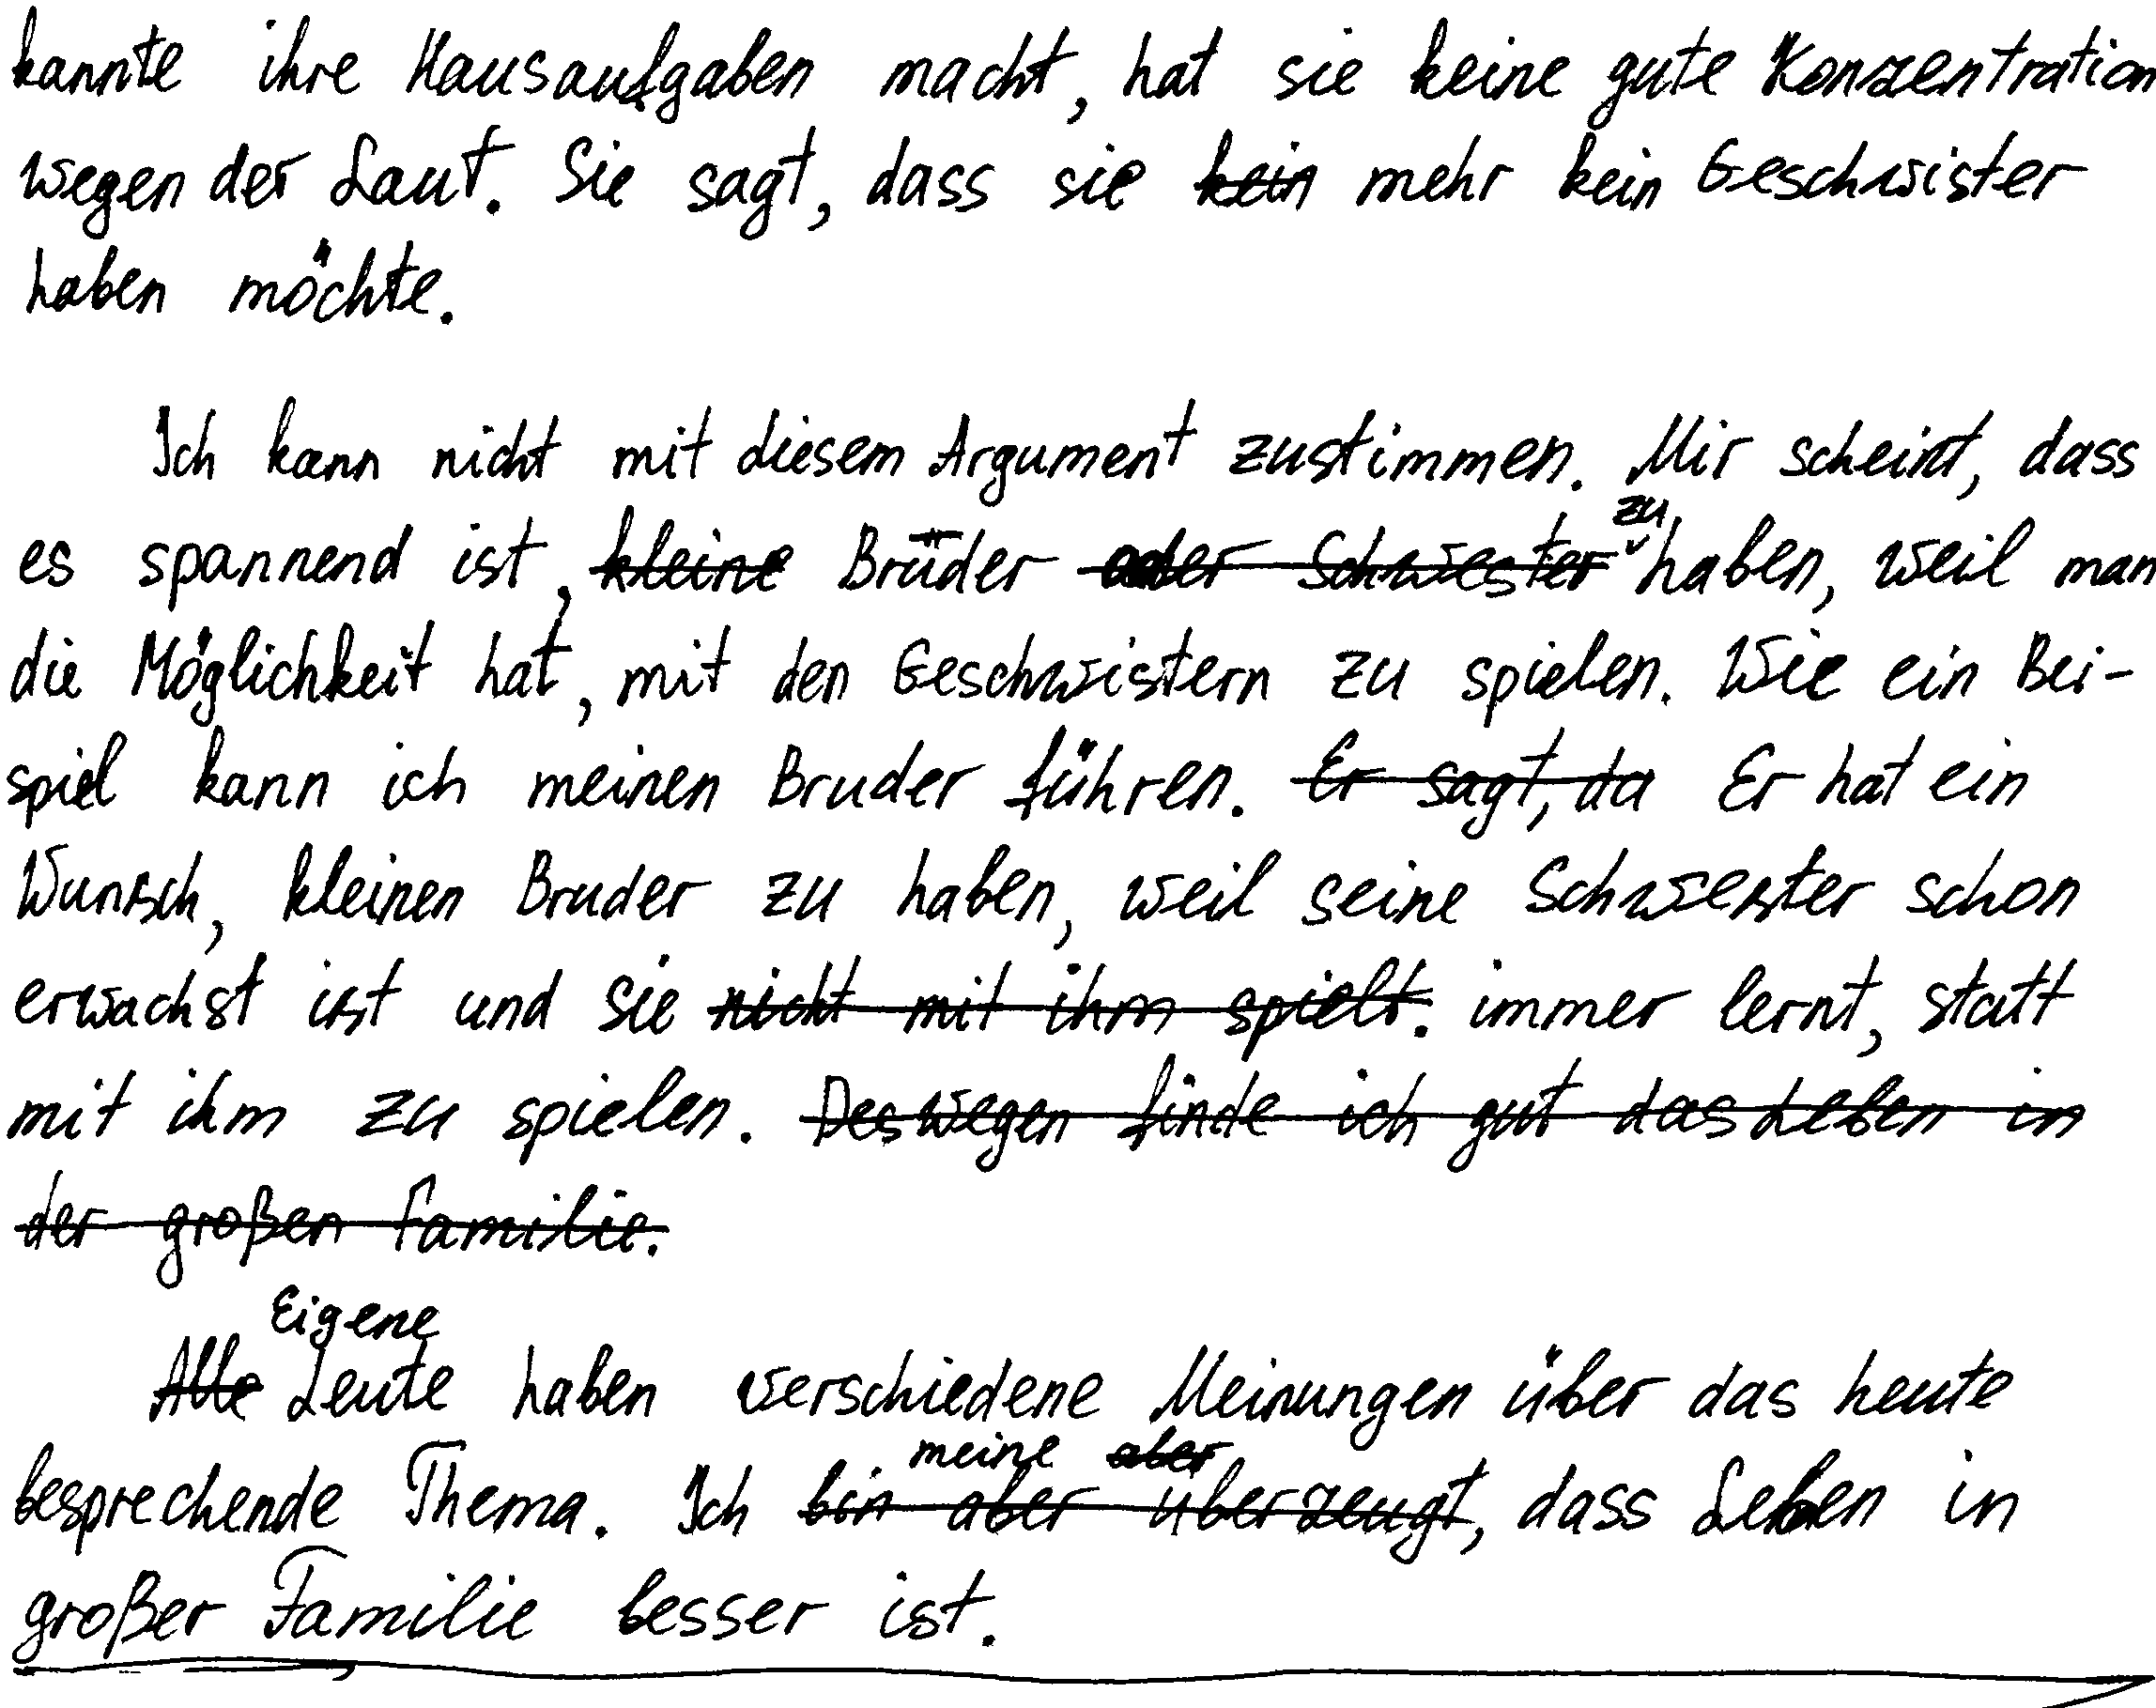 kannte ihre Hausaufgaben macht, hat sie keine gute Konzentration
wegen der Laut. Sie sagt, dass sie kein mehr kein Geschwister
haben möchte.
Ich kann nicht mit diesem Argument zustimmen. Mir scheint, dass
es spannend ist, kleine Brüder oder Schwester zu haben, weil man
die Möglichkeit hat, mit den Geschwistern zu spielen. Wie ein Bei-
spiel kann ich meinen Bruder führen. Er sagt, da Er hat ein
Wunsch, kleinen Bruder zu haben, weil seine Schwester schon
erwachst ist und sie nicht mit ihm spielt. immer lernt, statt
mit ihm zu spielen. Deswegen finde ich gut das Leben in
der großen Familie.
Eigene
Alle Leute haben verschiedene Meinungen über das heute
meine aber
besprechende Thema. Ich bin aber überzeugt, dass Leben in
großer Familie besser ist.